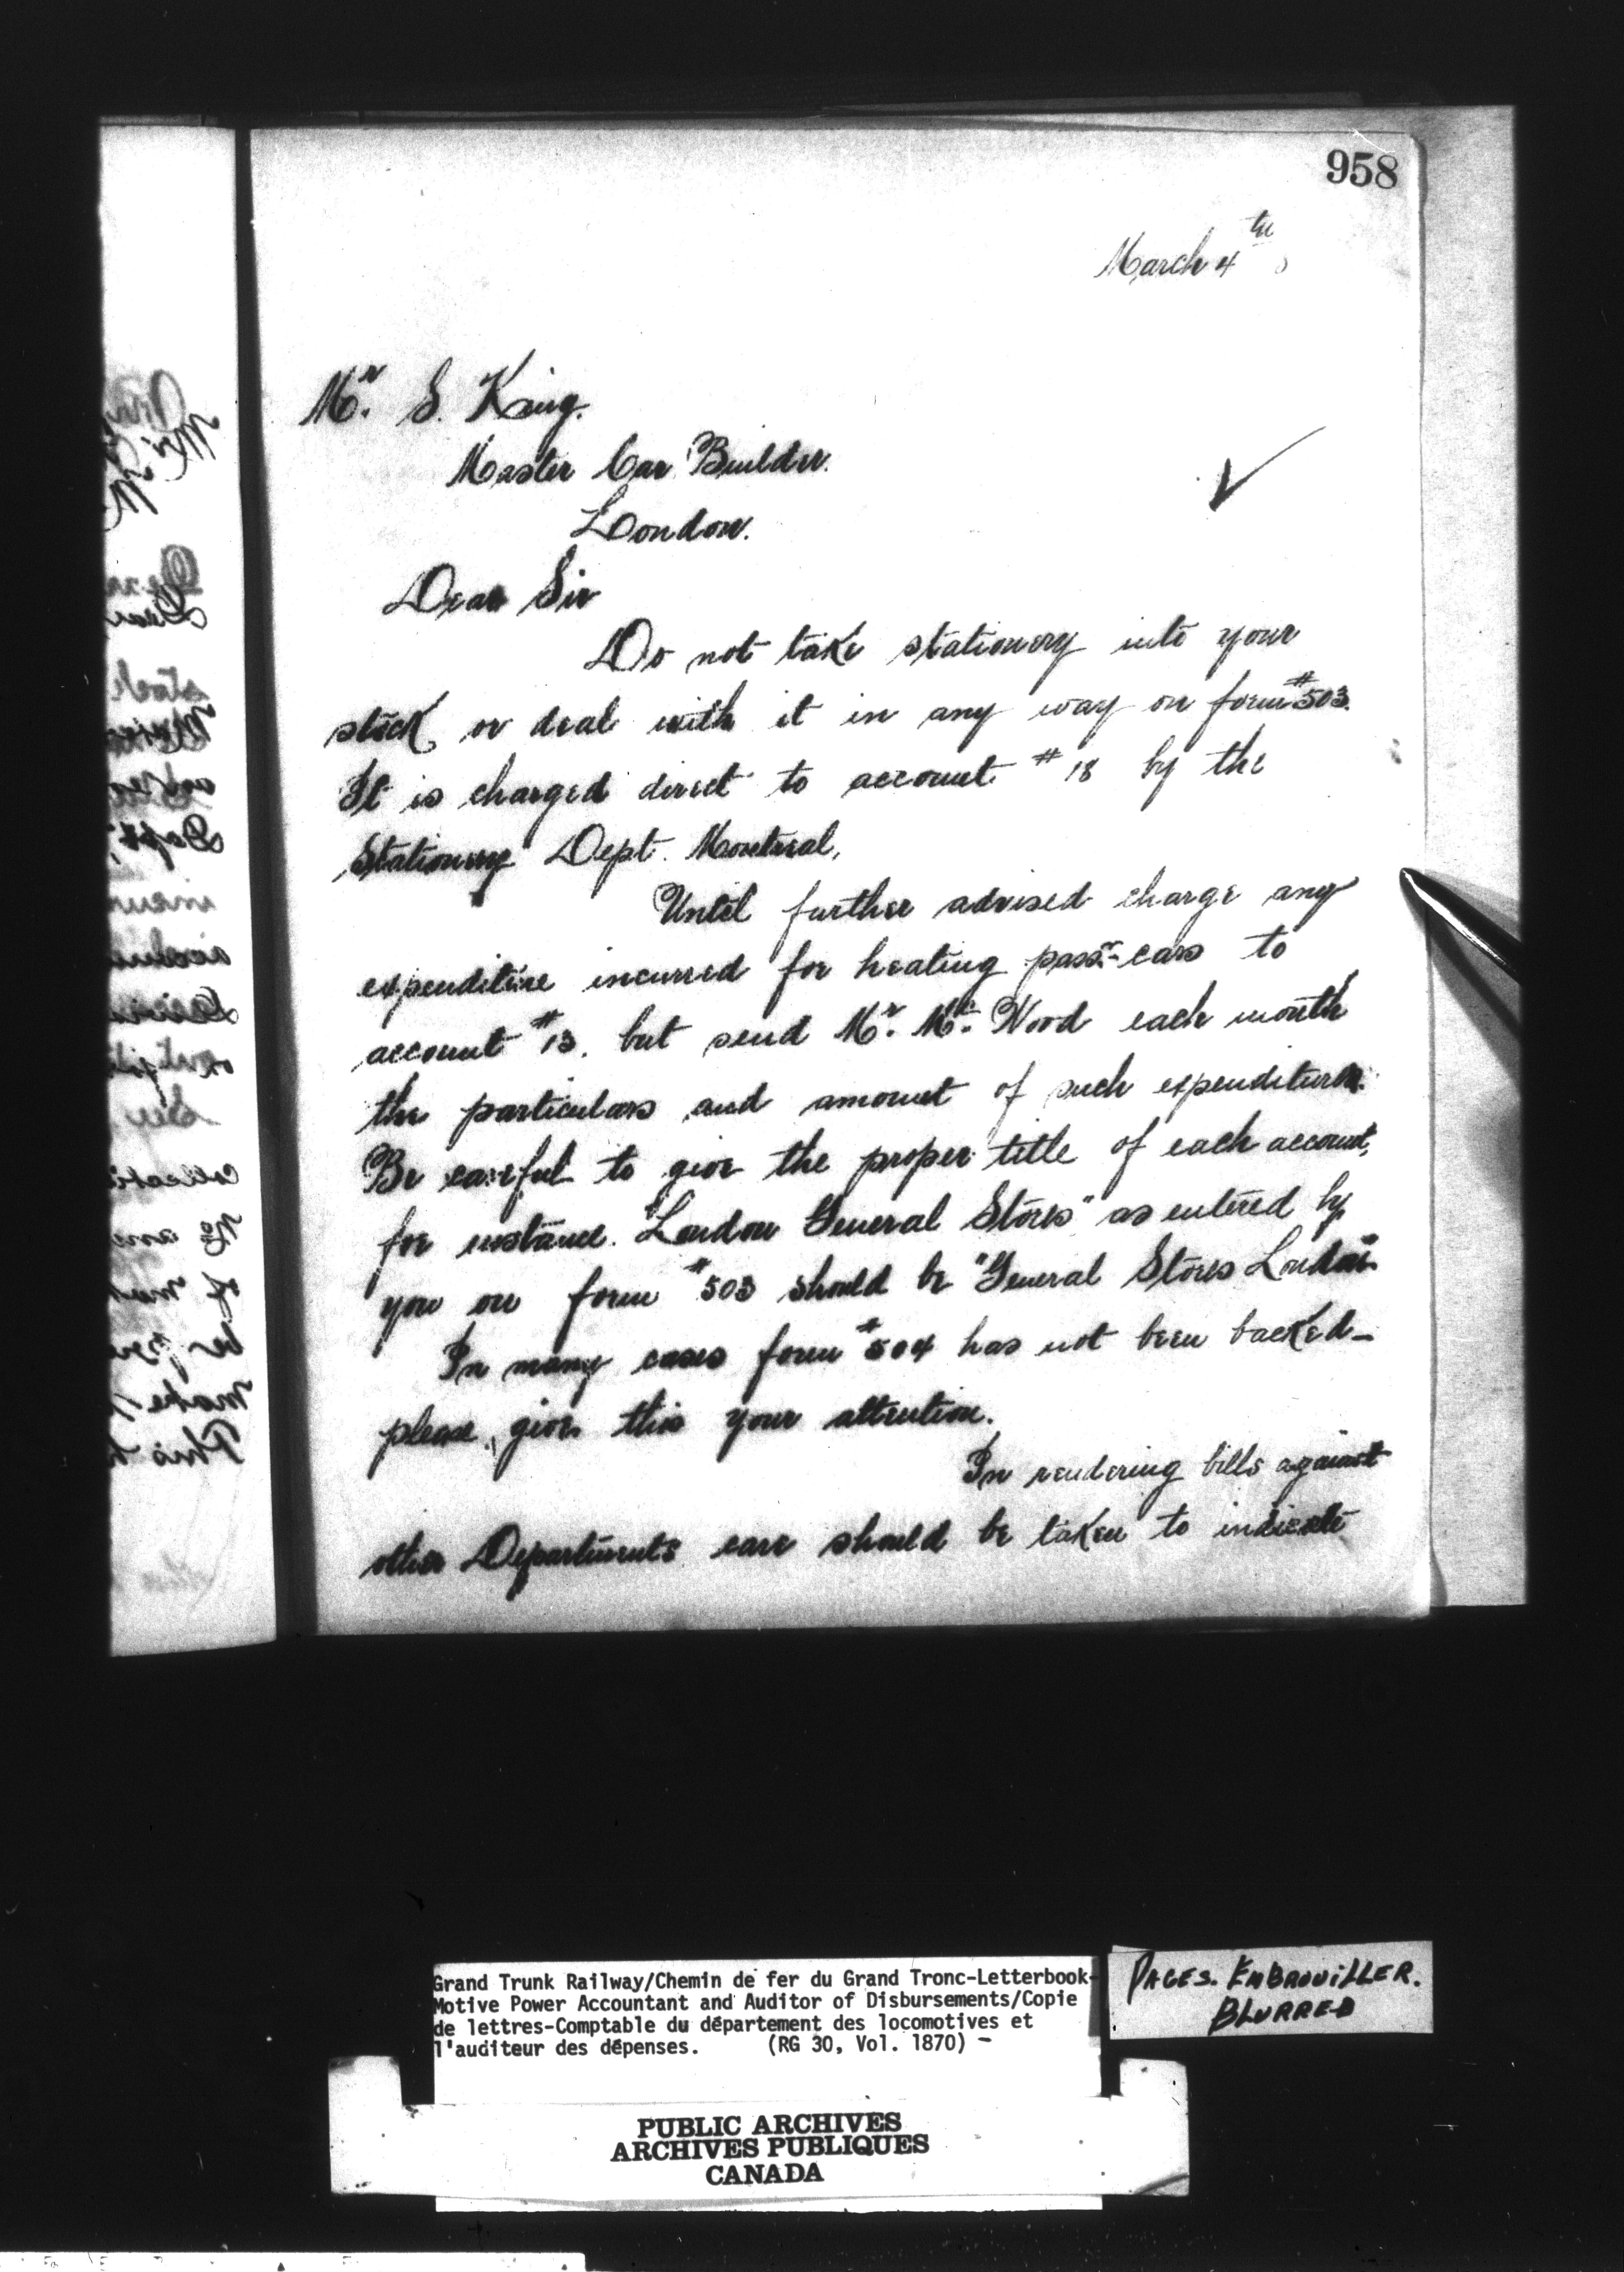 958
March 4th
Mr. S. King.
Master Car Builder.
London.
Dear Sir
Do not take stationery into your
stock or deal with it in any way on form #503.
It is charged direct to account #18 by the
Stationery Dept. Montreal,
Until further advised charge any
expenditure incurred for heating passr. cars to
account #13. but send Mr. Mc. Wood each month
the particulars and amount of such expenditure.
Be careful to give the proper title of each account,
for instance. "London General Stores" as entered by
you on form #503 should be "General Stores London"
In many cases form #504 has not been backed—
please, give this your attention.
In rendering bills against
other Departments care should be taken to indicate
Grand Trunk Railway/Chemin de fer du Grand Tronc-Letterbook-
Motive Power Accountant and Auditor of Disbursements/Copie
de lettres-Comptable du département des locomotives et
l'auditeur des dépenses. (RG 30, Vol. 1870) -
PAGES. EMBROUILLER.
BLURRED
PUBLIC ARCHIVES
ARCHIVES PUBLIQUES
CANADA